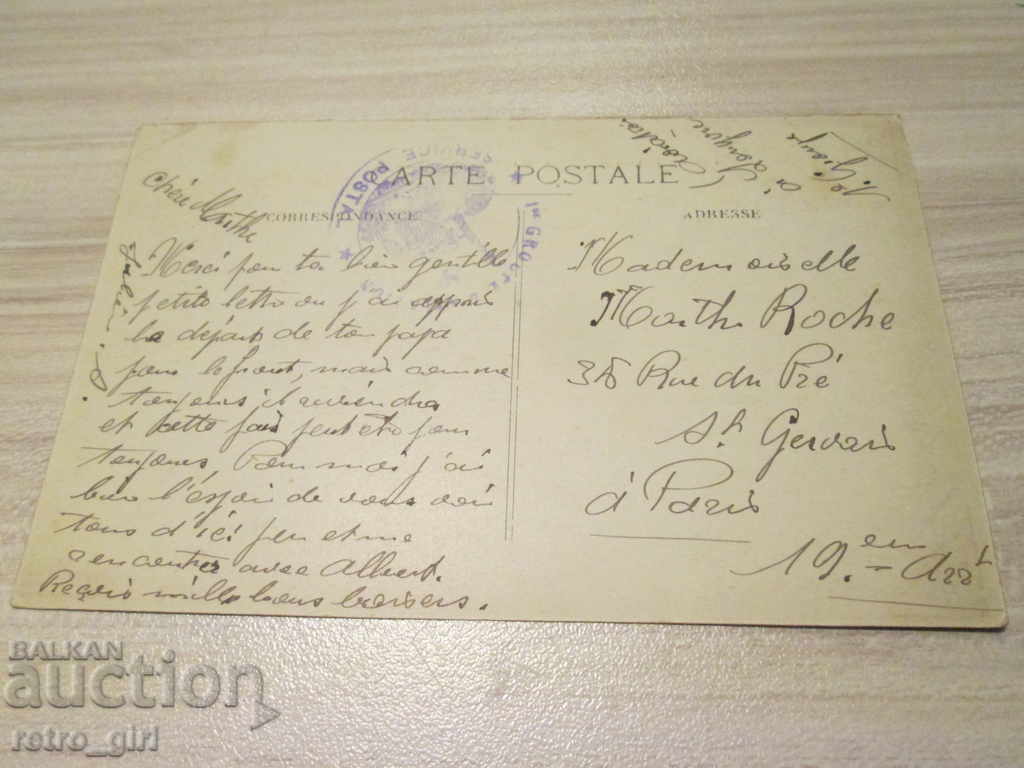 CARTE POSTALE
CORRESPONDANCE
ADRESSE
SERVICE POSTAL
1er GROUPE
Chère Marthe
Merci pour ta bien gentille
petite lettre où j'ai appris
le départ de ton papa
pour le front, mais comme
toujours il reviendra
et cette fois peut etre pour
toujours, Pour moi j'ai
bien l'espoir de vous voir
tous d'ici peu et me
rencontrer avec Albert.
Reçois mille bons baisers.
Mademoiselle
Marthe Roche
35 Rue du Pré
St Gervais
à Paris
19. em Arrt
BALKAN
auction
retro_girl